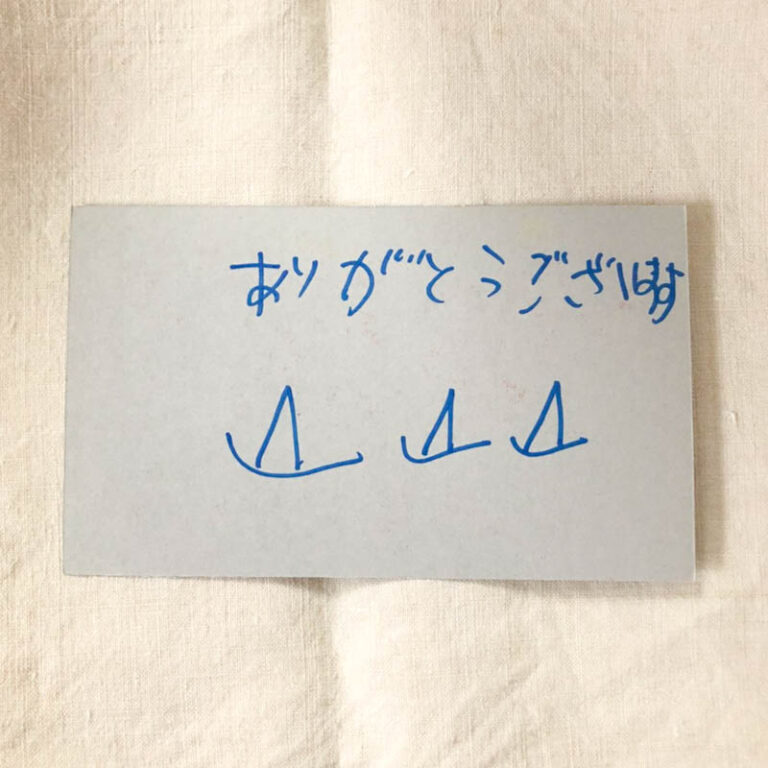 ありがとうございます